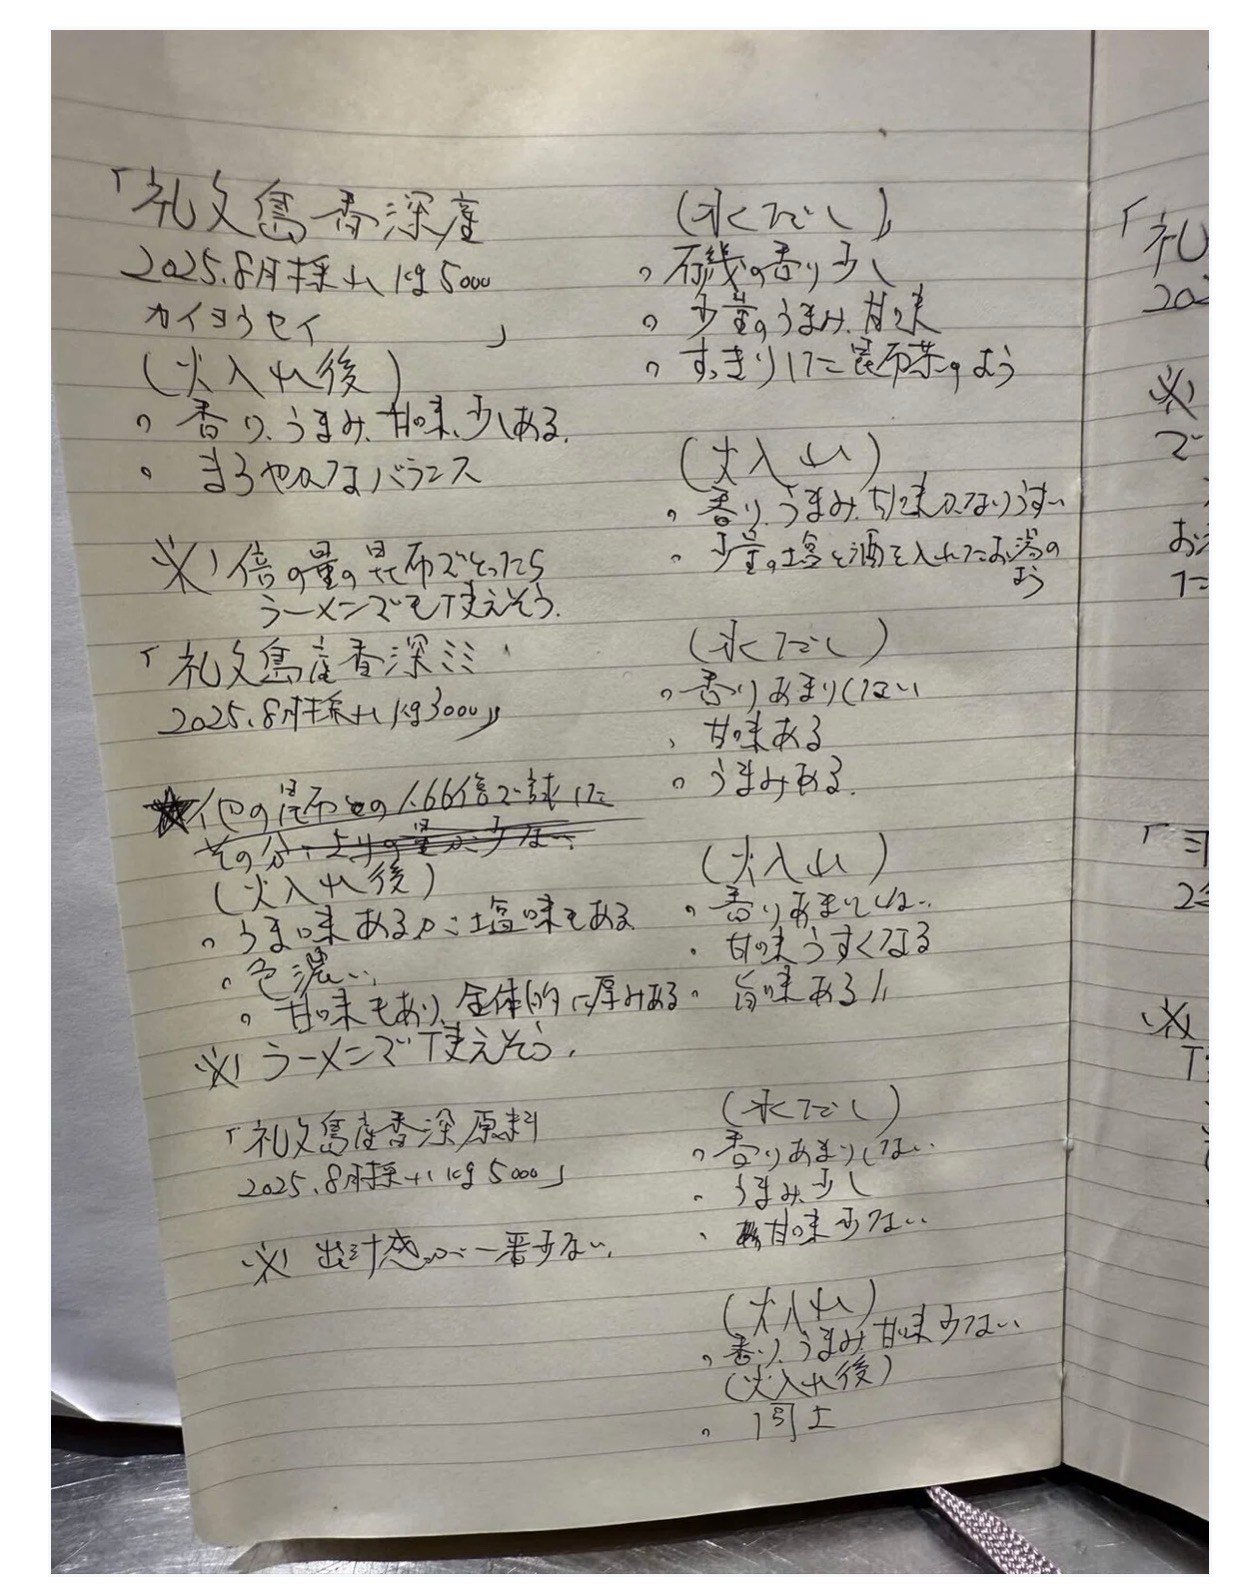 「礼文島香深産
2025.8月採れ 1kg 5000
カイヨウセイ 」
(火入れ後)
。香り、うまみ、甘味、少しある.
。まろやかなバランス
※倍の量の昆布でとったら
ラーメンでも使えそう.
「礼文島産香深ミミ
2025.8月採れ 1kg3000」
★他の昆布との1.66倍で試した
その分
(火入れ後)
。うま味あるが塩味もある
。色濃い、
。甘味もあり、全体的に厚みある
※ラーメンで使えそう.
「礼文島産香深原料
2025.8月採れ 1kg 5000」
※出汁感が一番少ない.
(水だし)
。磯の香り少し
。少量のうまみ、甘味
。すっきりした昆布茶のよう
(火入れ)
。香り、うまみ、甘味かなりうすい
。少量の塩と酒を入れたお湯の
よう
(水だし)
。香りあまりしない
、甘味ある
。うまみある.
(火入れ)
。香りあまりしない
・甘味うすくなる
。旨味ある
(水だし)
。香りあまりしない
・うまみ少し
、甘味少ない
(火入れ)
。香り、うまみ、甘味少ない
(火入れ後)
。同上
「礼
202
※
で
お
た
「
2
※